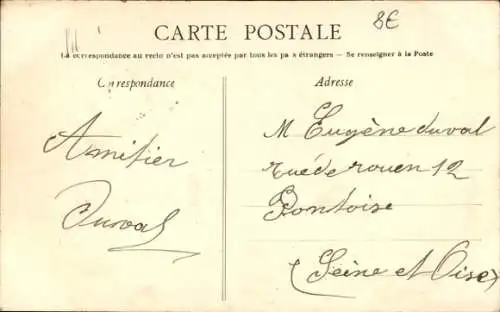 8€
CARTE POSTALE
La correspondance au recto n'est pas acceptée par tous les pays étrangers — Se renseigner à la Poste
Correspondance
Adresse
Amitier
Durval
M Eugène duval
rue de rouen 12
Pontoise
(Seine et Oise)